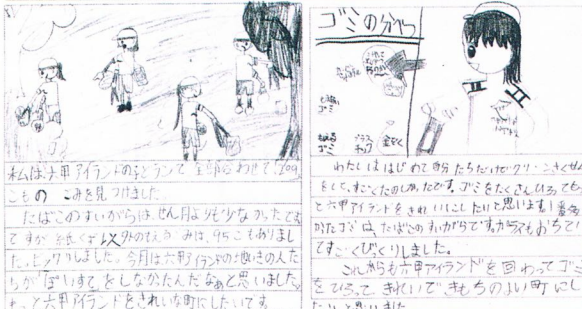 私は、六甲アイランドの
こもの ごみを見つけました。
たばこのすいがらは、せん月よりも少なかったです
ですが 紙くず以外のもえるごみは、95こもありまし
た。ビックリしました。今月は六甲アイランドの地いきの人た
ちが「ぽいすて」をしなかったんだなあと思いました。
もっと六甲アイランドをきれいな町にしたいです
ゴミの分べつ
もえない
ゴミ
もえる
ゴミ
プラス
チック
わたしは はじめて自分たちだけでクリーンさくせん
をして、すごくたのしかったです。ゴミをたくさんひろっても
と六甲アイランドをきれいにしたいと思います!
かったゴミは、たばこのすいがらです。ガラスもおちてい
てすごくびっくりしました。
これからも六甲アイランドを回わってゴミ
をひろって きれいできもちのよい町にし
たいと思いました